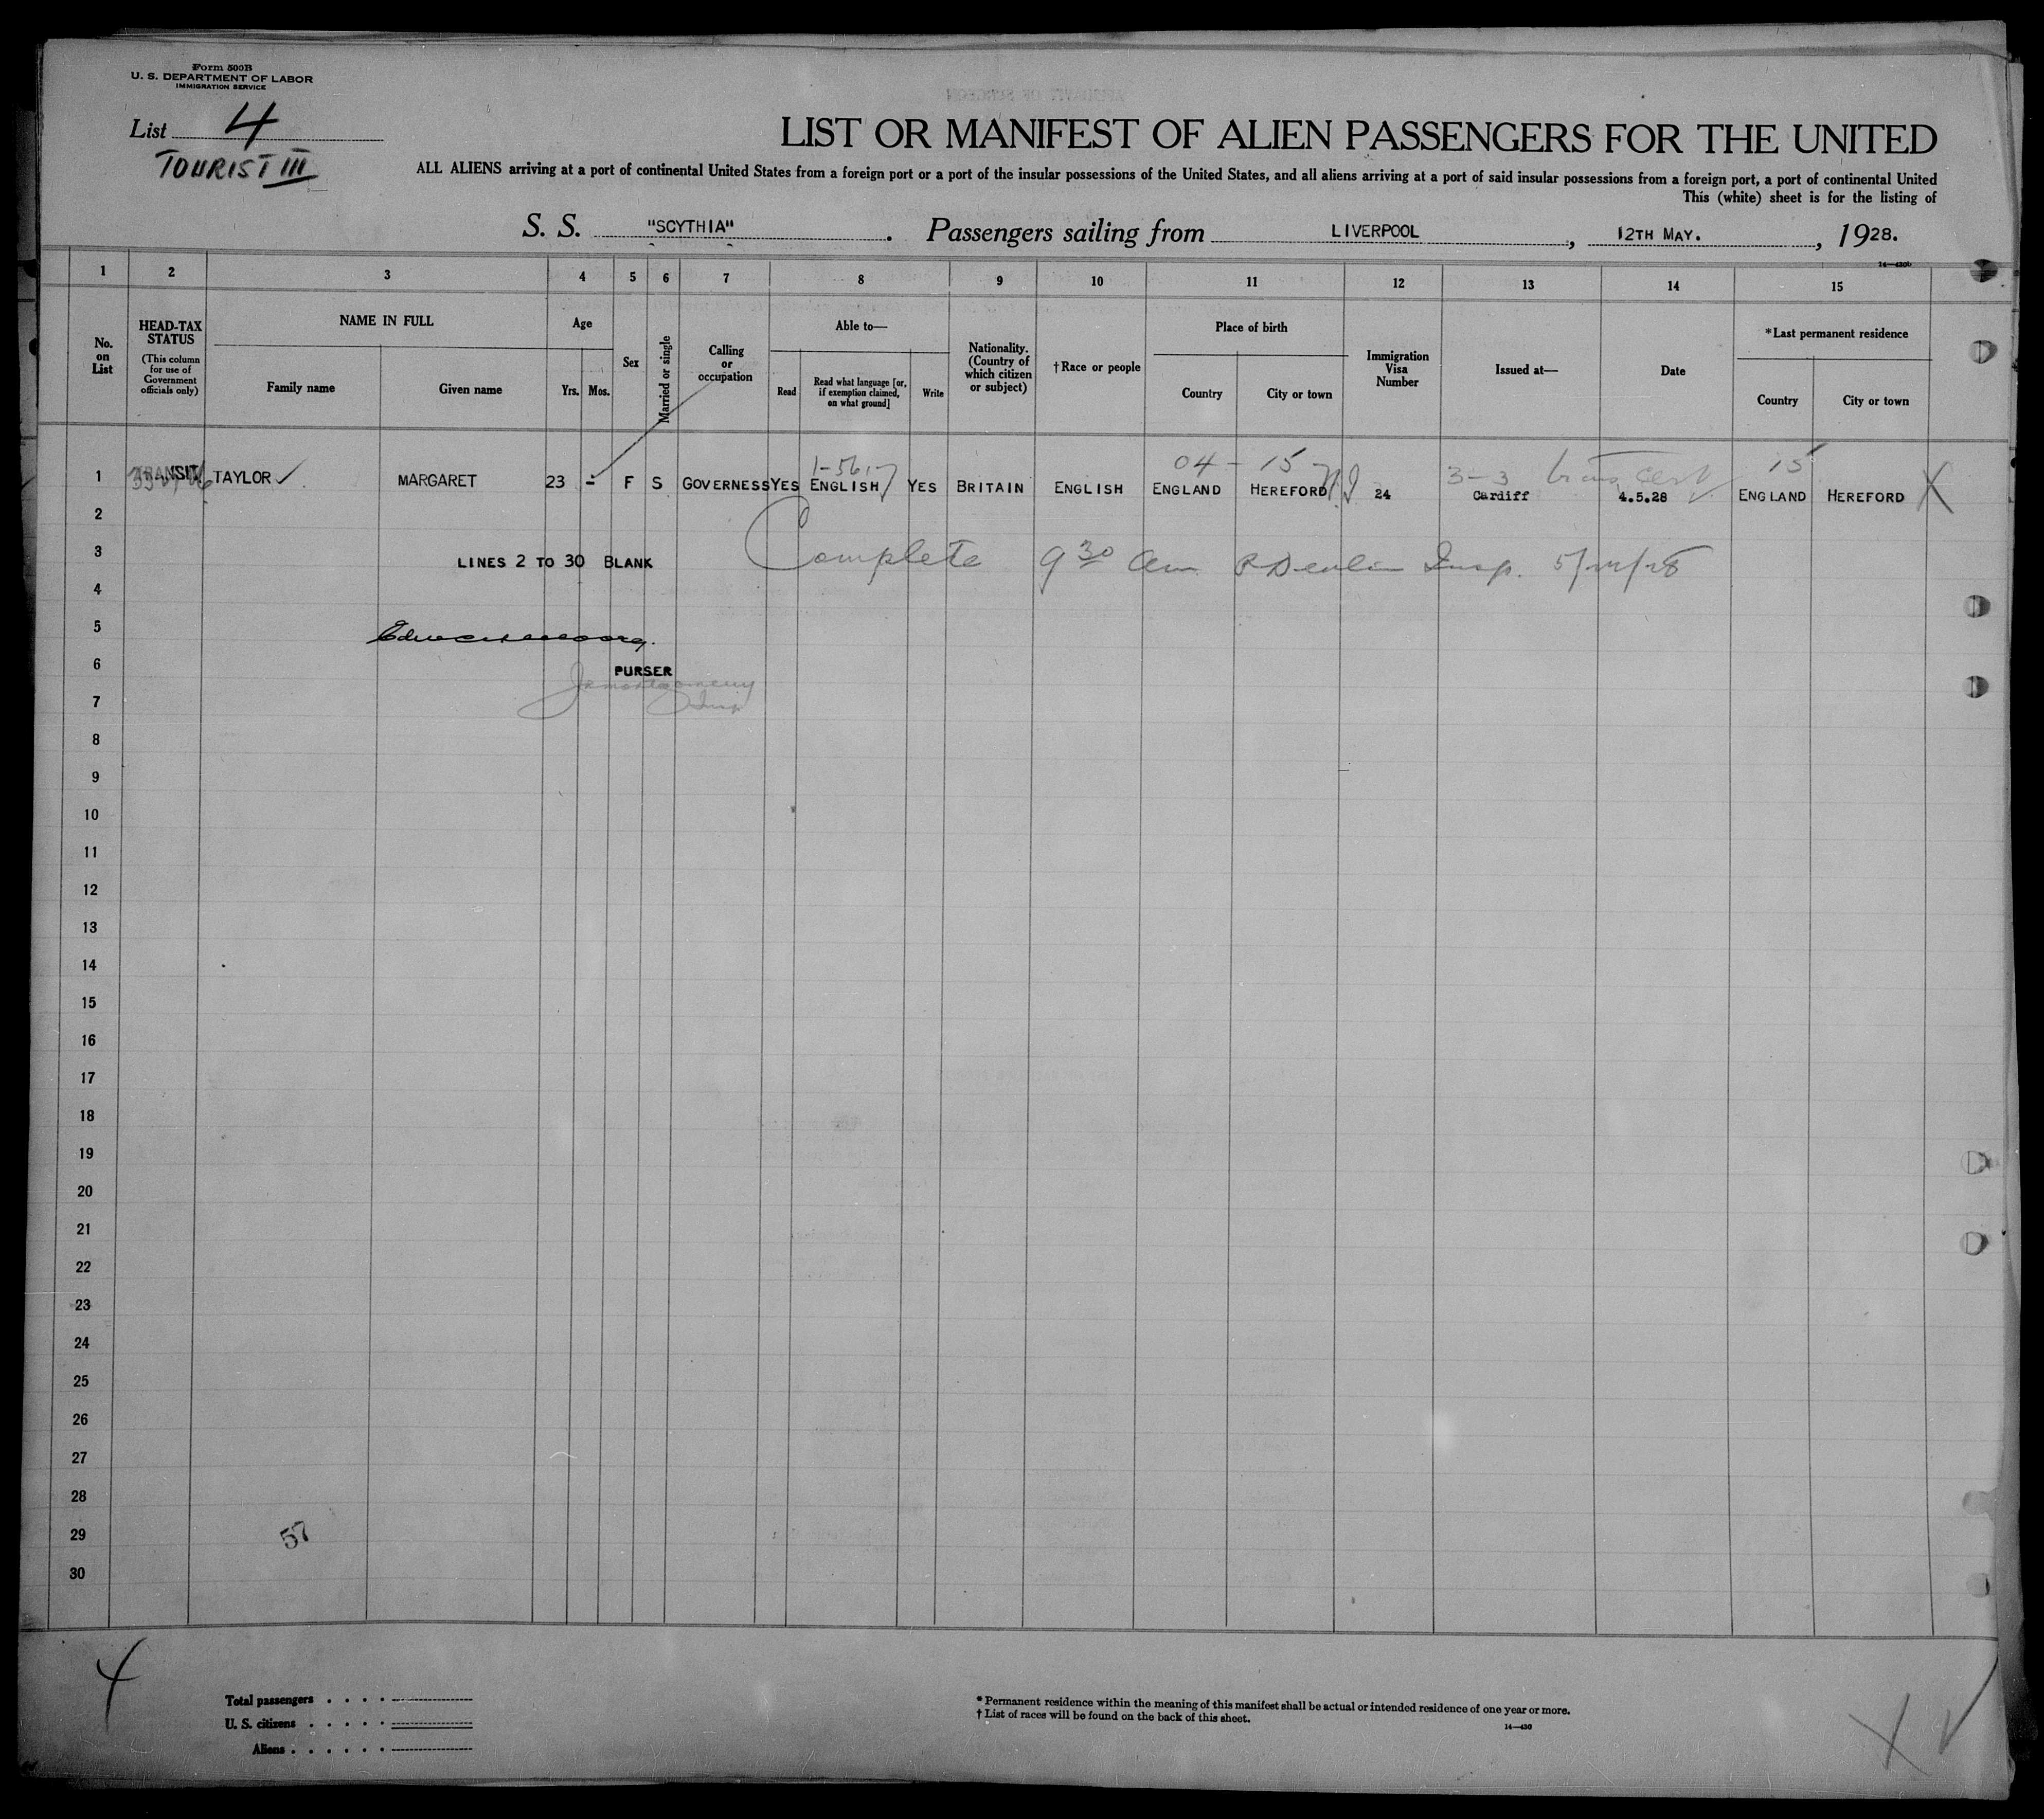 Form 500B
U. S. DEPARTMENT OF LABOR
IMMIGRATION SERVICE
List 4
TOURIST III
LIST OR MANIFEST OF ALIEN PASSENGERS FOR THE UNITED
ALL ALIENS arriving at a port of continental United States from a foreign port or a port of the insular possessions of the United States, and all aliens arriving at a port of said insular possessions from a foreign port, a port of continental United
This (white) sheet is for the listing of
S. S. "SCYTHIA". Passengers sailing from LIVERPOOL, 12TH MAY., 1928.
14—430b
1 2 3 4 5 6 7 8 9 10 11 12 13 14 15
No. on List
HEAD-TAX STATUS
(This column for use of Government officials only)
NAME IN FULL
Family name
Given name
Age
Yrs. Mos.
Sex
Married or single
Calling or occupation
Able to—
Read
Read what language [or, if exemption claimed, on what ground]
Write
Nationality. (Country of which citizen or subject)
†Race or people
Place of birth
Country
City or town
Immigration Visa Number
Issued at—
Date
*Last permanent residence
Country
City or town
04 - 15 3-3 15
1 TRANSIT TAYLOR ✓ MARGARET 23 - F S GOVERNESS YES ENGLISH YES BRITAIN ENGLISH ENGLAND HEREFORD 24 Cardiff 4.5.28 ENGLAND HEREFORD X
2
3 LINES 2 TO 30 BLANK Complete 9 30 am Insp.
4
5
6 PURSER
7 Insp
8
9
10
11
12
13
14
15
16
17
18
19
20
21
22
23
24
25
26
27
28
29 57
30
4
Total passengers
U. S. citizens
Aliens
* Permanent residence within the meaning of this manifest shall be actual or intended residence of one year or more.
† List of races will be found on the back of this sheet.
14—430
X ✓